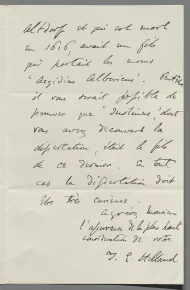 Altdorf et qui est mort
en 1616 avait un fils
qui portait les noms
"Aegidius Albericus". Peut-être
il vous serait possible de
prouver que "Justinus", dont
vous avez découvert la
dissertation, était le fils
de ce dernier. En tout
cas la dissertation doit
être très curieuse.
Agréez, Monsieur
l'assurance de la plus haute
considération de votre
T. E. Holland